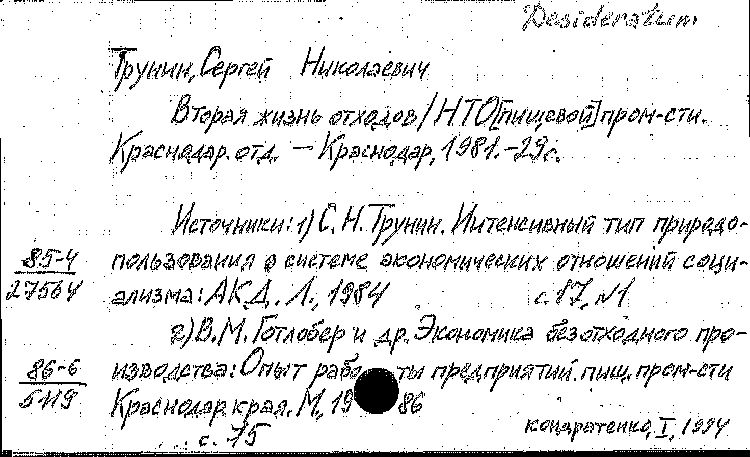 Desideratum
Трунин, Сергей Николаевич
Вторая жизнь отходов / НТО [пищевой] пром-сти.
Краснодар. отд. — Краснодар, 1981. - 29 с.
Источники: 1) С. Н. Трунин. Интенсивный тип природо-
85-4 пользования в системе экономических отношений соци-
27564 ализма: АКД. Л., 1984 с. 17, №1
2) В. М. Готлобер и др. Экономика безотходного про-
86-6 изводства: Опыт рабо ты предприятий пищ. пром-сти
5119 Краснодар. края. М., 19 86
с. 75
Кондратенко, I, 1994